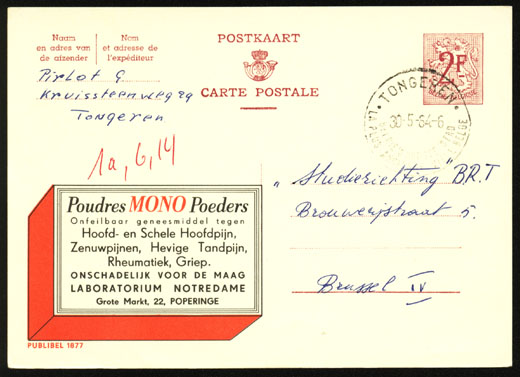 Naam
en adres van
de afzender
Nom
et adresse de
l'expéditeur
POSTKAART
CARTE POSTALE
2F
TONGEREN
30-5-64-6
Pirlot G
Kruissteenweg 29
Tongeren
1a, 6, 14
"Studierichting" B.R.T
Brouwerijstraat 5.
Brussel IV
Poudres MONO Poeders
Onfeilbaar geneesmiddel tegen
Hoofd- en Schele Hoofdpijn,
Zenuwpijnen, Hevige Tandpijn,
Rheumatiek, Griep.
ONSCHADELIJK VOOR DE MAAG
LABORATORIUM NOTREDAME
Grote Markt, 22, POPERINGE
PUBLIBEL 1877